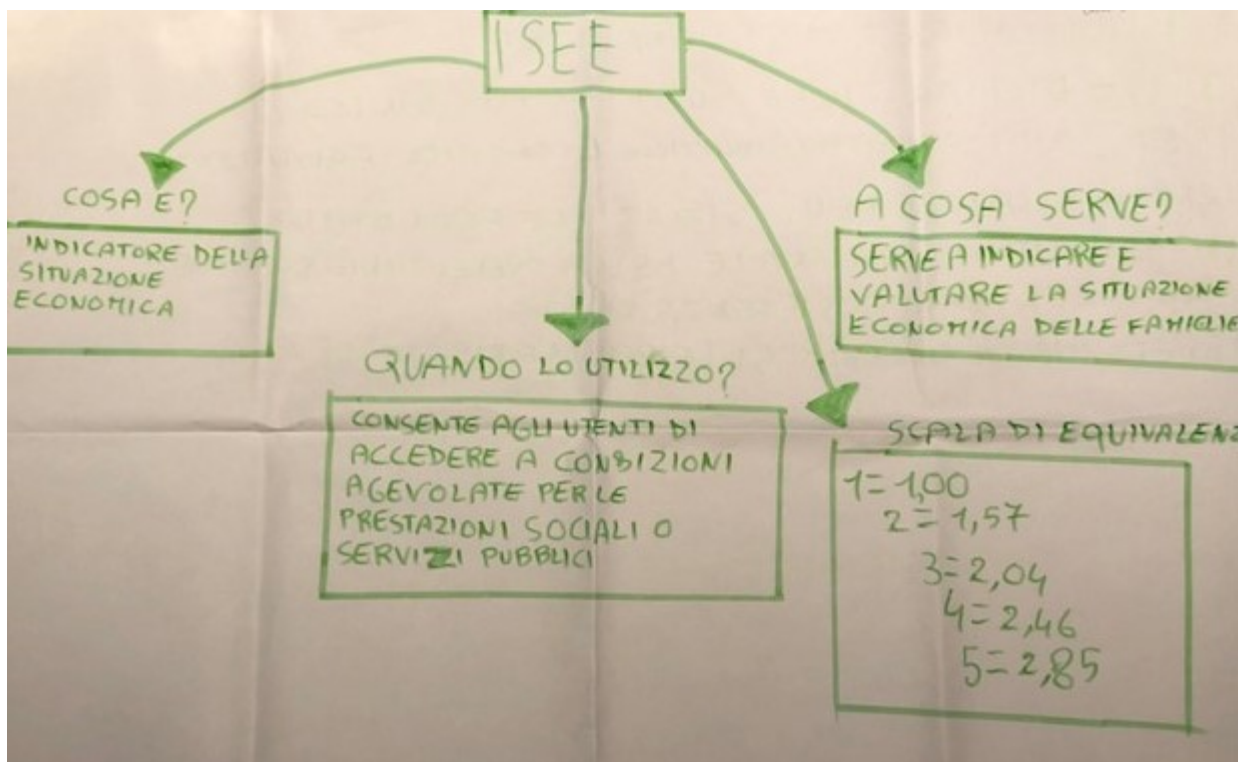 ISEE
COSA E?
INDICATORE DELLA
SITUAZIONE
ECONOMICA
QUANDO LO UTILIZZO?
CONSENTE AGLI UTENTI DI
ACCEDERE A CONDIZIONI
AGEVOLATE PER LE
PRESTAZIONI SOCIALI O
SERVIZI PUBBLICI
A COSA SERVE?
SERVE A INDICARE E
VALUTARE LA SITUAZIONE
ECONOMICA DELLE FAMIGLIE
SCALA DI EQUIVALENZ
1=1,00
2=1,57
3=2,04
4=2,46
5=2,85